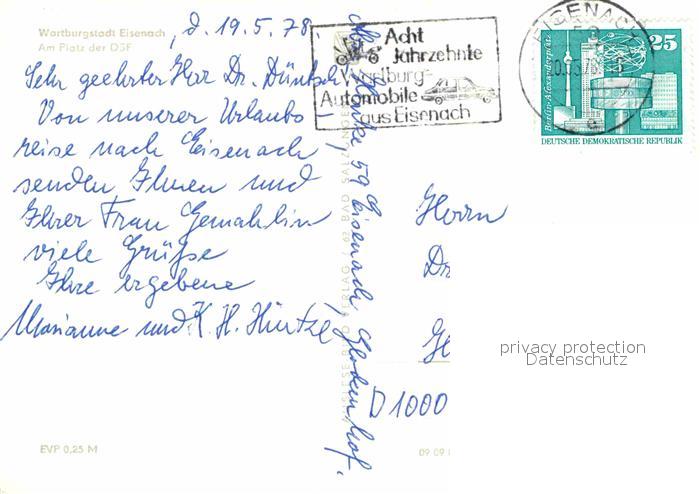 Wartburgstadt Eisenach
Am Platz der DSF
, d. 19.5.78.
Sehr geehrter Herr Dr. Düntsch
Von unserer Urlaubs-
reise nach Eisenach
senden Ihnen und
Ihrer Frau Gemahlin
viele Grüße
Ihre ergebene
Marianne und K. H. Hintze
EVP 0,25 M
59 Eisenach,
Acht
Jahrzehnte
Automobile
aus Eisenach
EISENACH
25
Berlin-Alexanderplatz
DEUTSCHE DEMOKRATISCHE REPUBLIK
Herrn
Dr
D 1000
09 09 1
privacy protection
Datenschutz